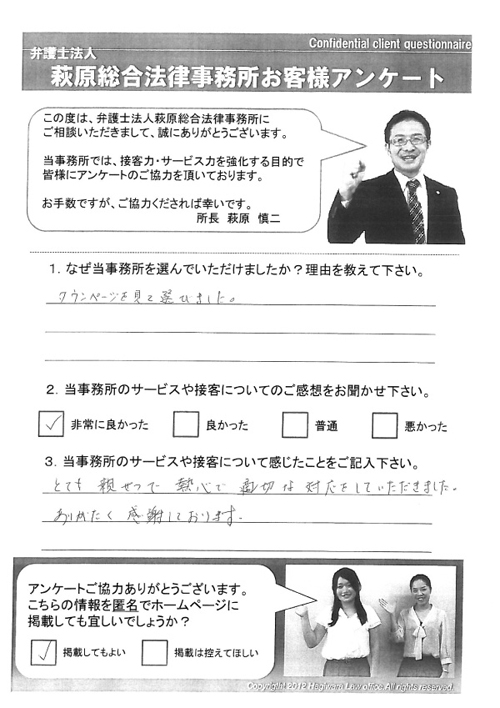 Confidential client questionnaire
弁護士法人
萩原総合法律事務所お客様アンケート
この度は、弁護士法人萩原総合法律事務所に
ご相談いただきまして、誠にありがとうございます。
当事務所では、接客力・サービス力を強化する目的で
皆様にアンケートのご協力を頂いております。
お手数ですが、ご協力くだされば幸いです。
所長 萩原 慎二
1. なぜ当事務所を選んでいただけましたか？理由を教えて下さい。
タウンページを見て選びました。
2. 当事務所のサービスや接客についてのご感想をお聞かせ下さい。
✓ 非常に良かった 良かった 普通 悪かった
3. 当事務所のサービスや接客について感じたことをご記入下さい。
とても 親せつで 熱心で 適切な 対応をしていただきました。
ありがたく 感謝しております。
アンケートご協力ありがとうございます。
こちらの情報を匿名でホームページに
掲載しても宜しいでしょうか？
✓ 掲載してもよい 掲載は控えてほしい
Copyright 2012 Hagiwara Law office All rights reserved.